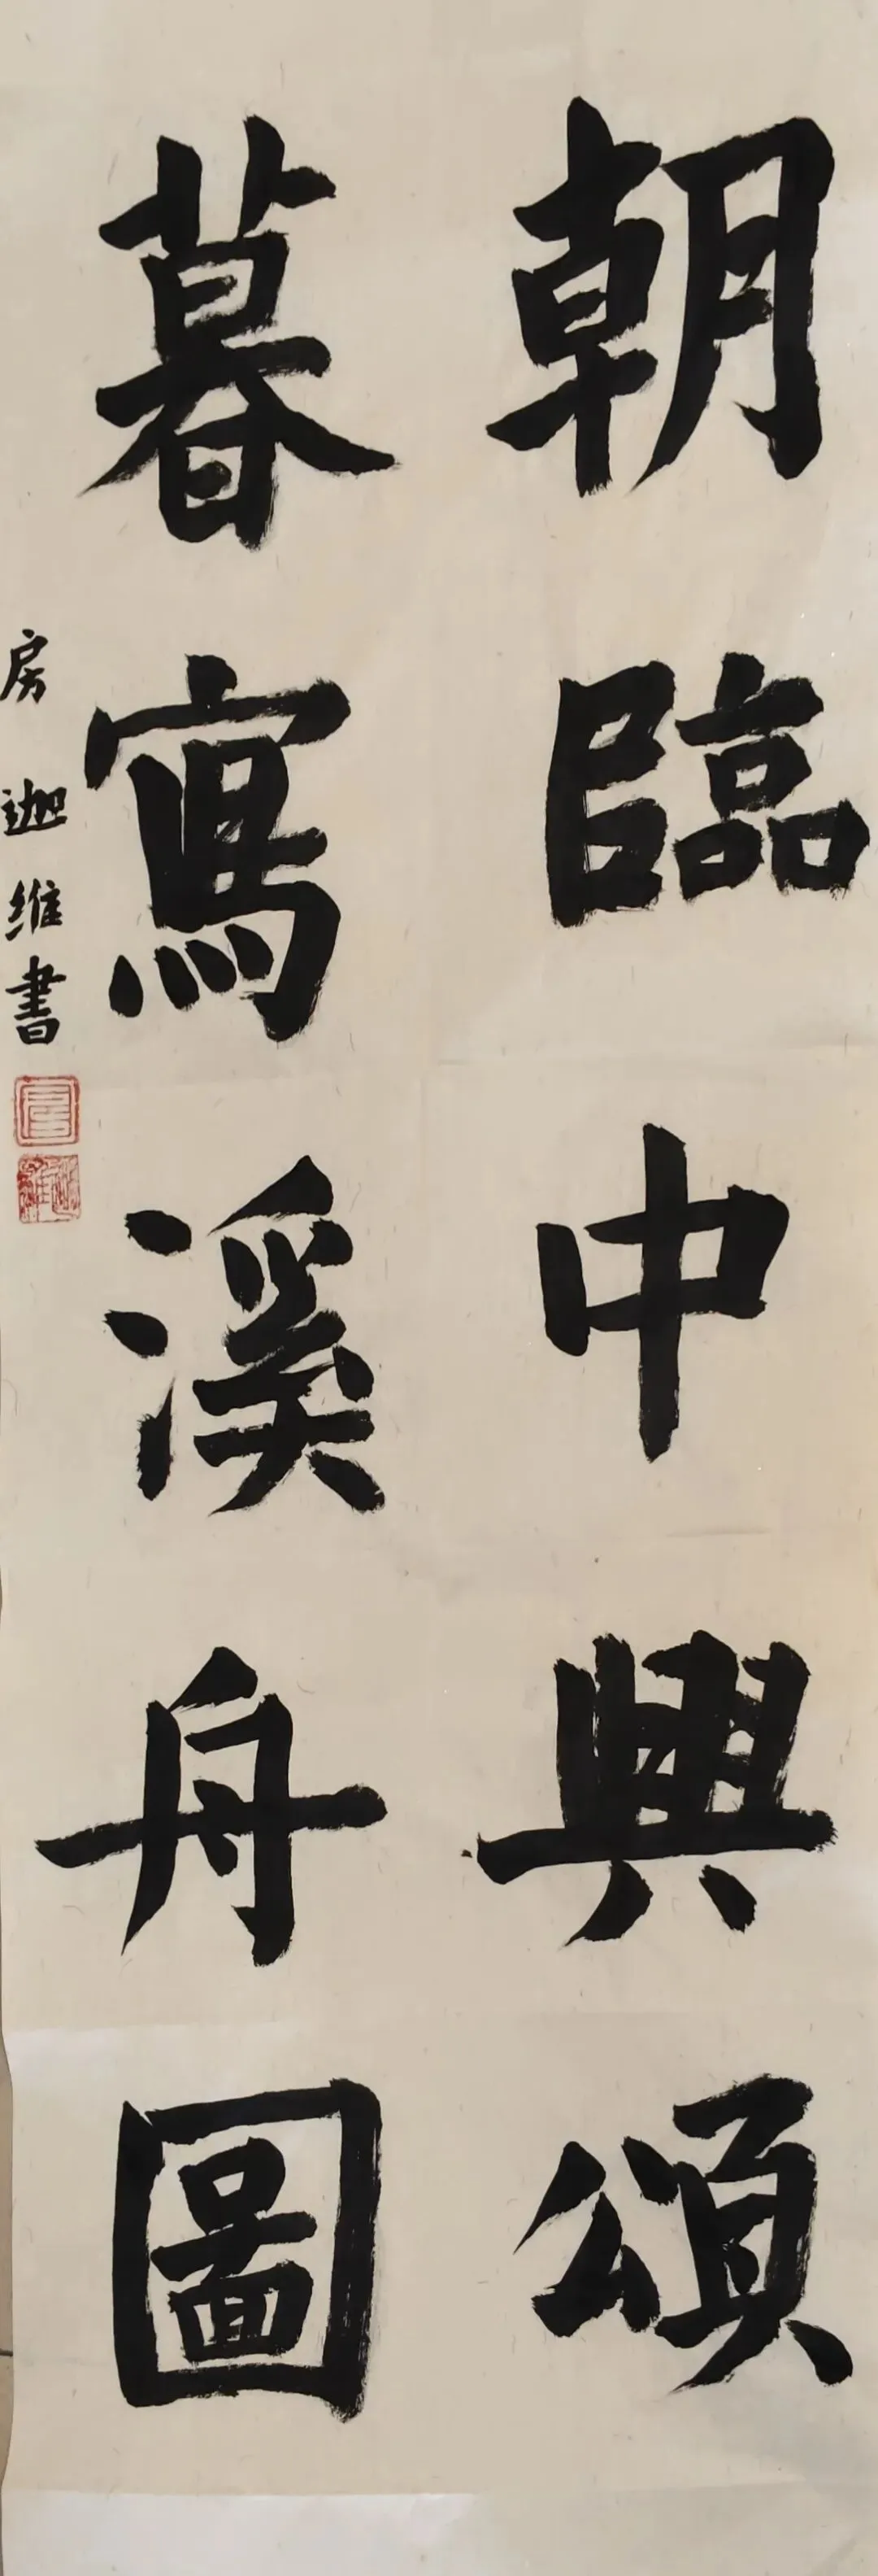 朝臨中興頌
暮寫溪舟圖
房迦維書